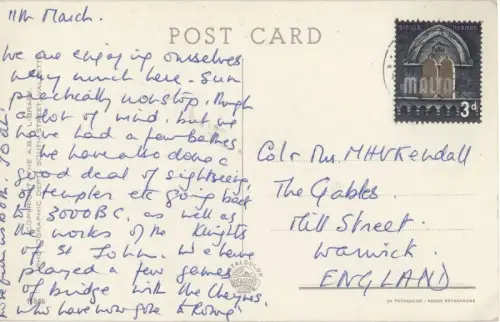 11th March.
We are enjoying ourselves
very much here. Sun
practically nonstop, though
a lot of wind, but we
have had a few bathes
We have also done a
good deal of sightseeing,
of temples etc going back
to 3000 BC, as well as
the works of the Knights
of St John. We have
played a few games
of bridge with the Cheynes,
who have now gone to Rome.
POST CARD
MALTA
3d
Col & Mrs. MHV Kendall
The Gables.
Mill Street.
Warwick.
ENGLAND
COPYRIGHT THE A.B.C. LIBRARY
PHOTOGRAPHIC DEPT. SOUTH STREET, VALLETTA